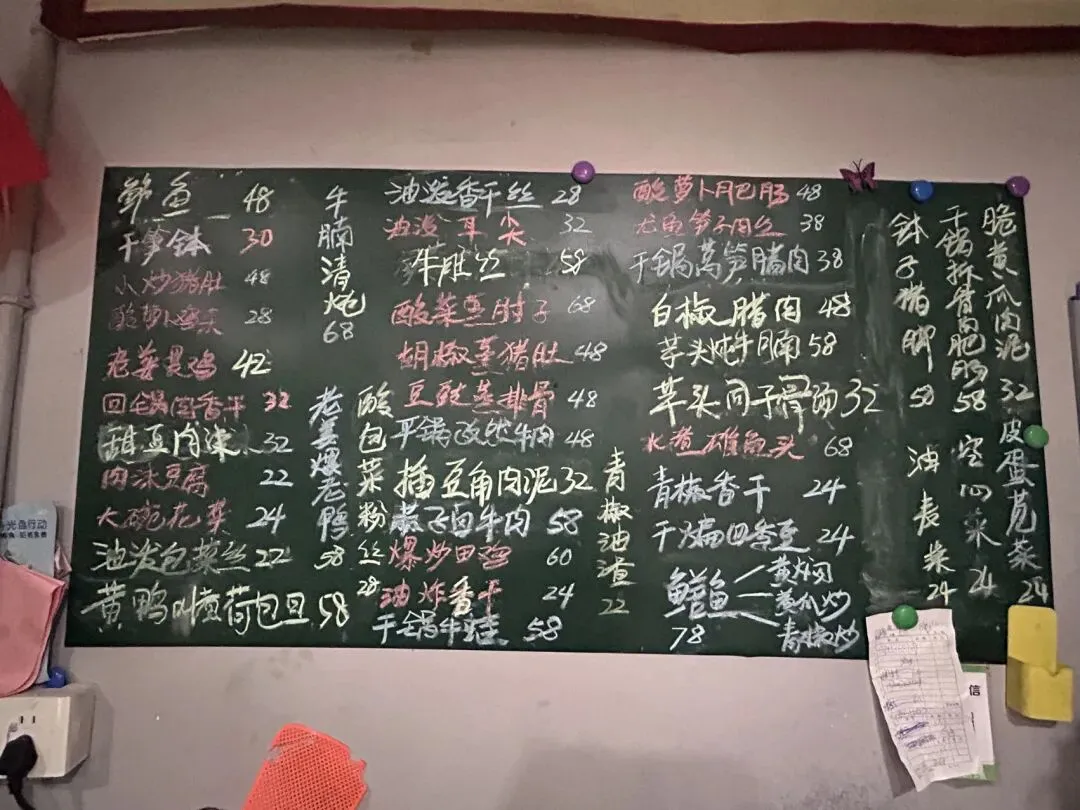 鱼 48
干笋钵 30
小炒猪肚 48
酸萝卜 28
老姜 鸡 42
回锅肉香干 32
豆肉沫 32
肉沫豆腐 22
大碗花菜 24
油泼包菜丝 22
黄鸭叫煮荷包旦 58
牛腩清炖 68
老姜爆老鸭 58
酸包菜粉丝 28
油泼香干丝 28
油泼耳尖 32
牛 丝 58
酸菜蒸肘子 68
胡椒蒸猪肚 48
豆豉蒸排骨 48
平锅孜然牛肉 48
擂豆角肉泥 32
牛肉 58
爆炒田鸡 60
油炸香干 24
干锅牛蛙 58
青椒油渣 22
酸萝卜肥肠 48
尤鱼笋子肉丝 38
干锅莴笋腊肉 38
白椒腊肉 48
芋头炖牛腩 58
芋头肉子骨汤 32
水煮雄鱼头 68
青椒香干 24
干煸四季豆 24
鳝鱼 黄焖
黄瓜炒
78 青椒炒
钵子猪脚 58
油麦菜 24
干锅拆骨肉肥肠 58
空心菜 24
脆黄瓜肉泥 32
皮蛋苋菜 24
光盘行动
信